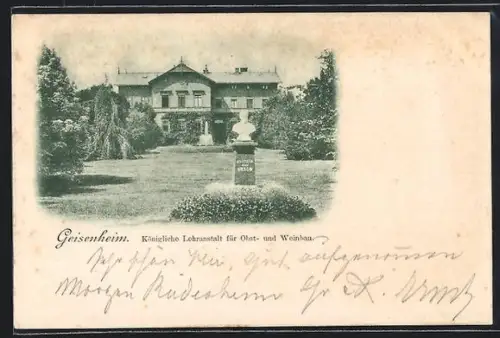 Geisenheim. Königliche Lehranstalt für Obst- und Weinbau.
Sehr schön hier, Gut aufgenommen
Morgen Rüdesheim Gr